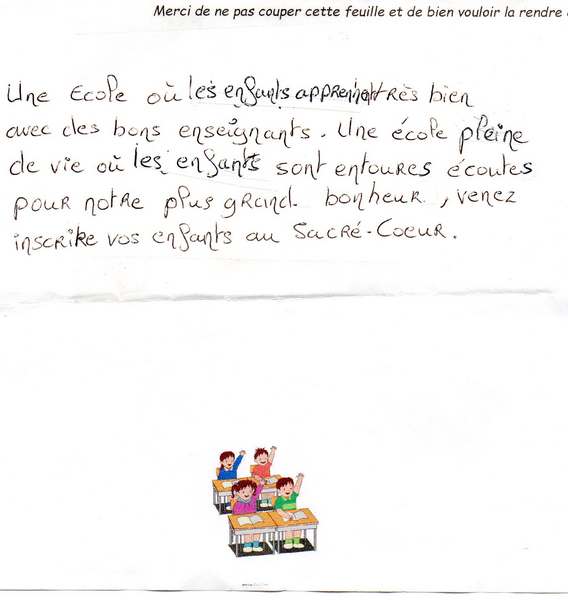 Merci de ne pas couper cette feuille et de bien vouloir la rendre
Une Ecole où les enfants apprennent très bien
avec des bons enseignants. Une école pleine
de vie où les enfants sont entoures écoutes
pour notre plus grand bonheur, venez
inscrire vos enfants au Sacré-Coeur.